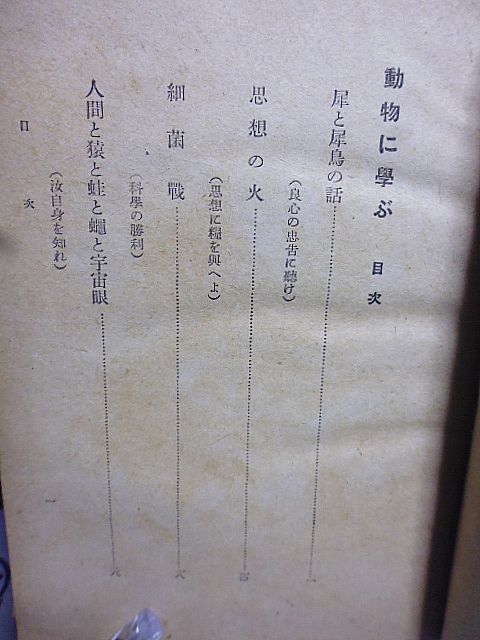 動物に學ぶ 目次
犀と犀鳥の話……一
(良心の忠告に聽け)
思想の火……四
(思想に糧を與へよ)
細菌戰……六
(科學の勝利)
人間と猿と蛙と蠅と宇宙眼……八
(汝自身を知れ)
目次
一